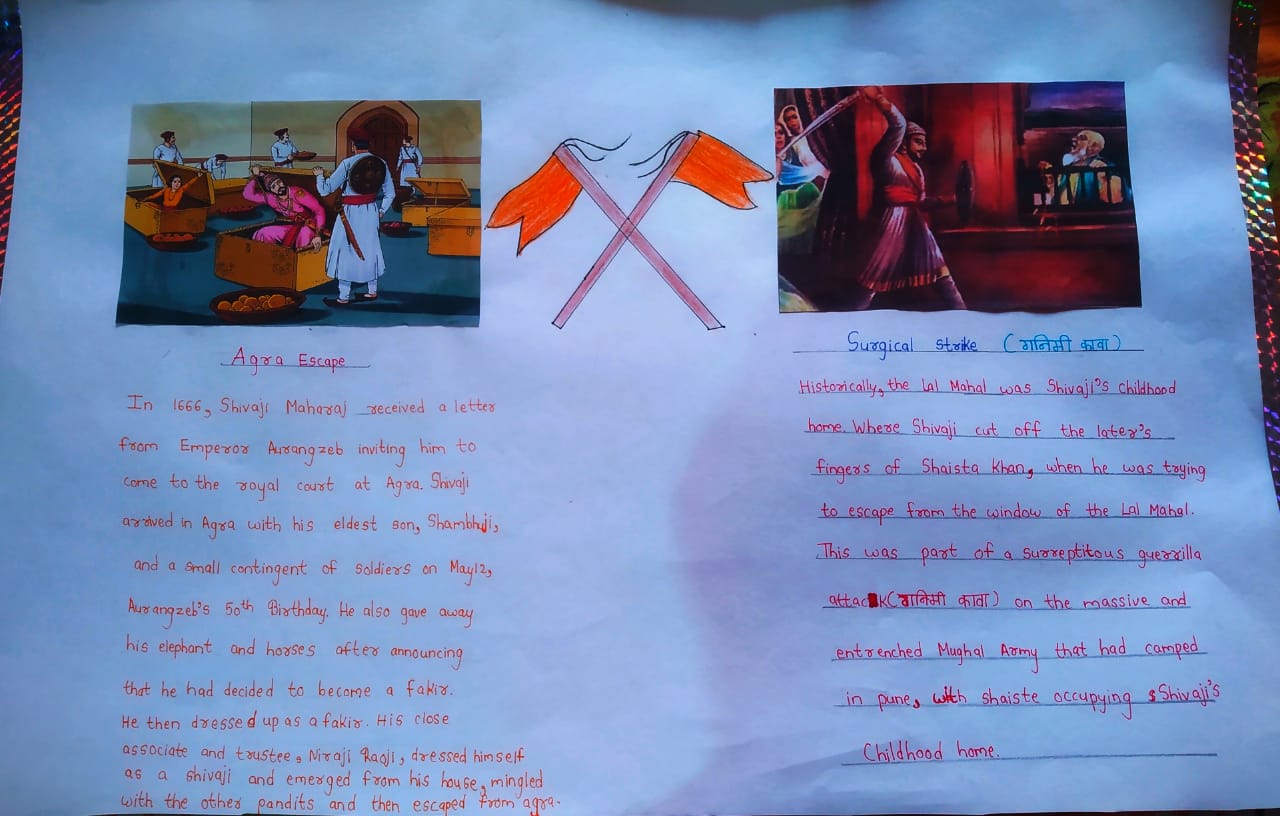 Agra Escape
In 1666, Shivaji Maharaj received a letter
from Emperor Aurangzeb inviting him to
come to the royal court at Agra. Shivaji
arrived in Agra with his eldest son, Shambhuji,
and a small contingent of soldiers on May12,
Aurangzeb's 50th Birthday. He also gave away
his elephant and horses after announcing
that he had decided to become a fakir.
He then dressed up as a fakir. His close
associate and trustee, Niraji Raoji, dressed himself
as a shivaji and emerged from his house, mingled
with the other pandits and then escaped from agra.
Surgical strike (गनिमी कावा)
Historically, the Lal Mahal was Shivaji's childhood
home. Where Shivaji cut off the later's
fingers of Shaista Khan, when he was trying
to escape from the window of the Lal Mahal.
This was part of a surreptitous guerrilla
attack (गनिमी कावा) on the massive and
entrenched Mughal Army that had camped
in pune, with shaiste occupying Shivaji's
Childhood home.